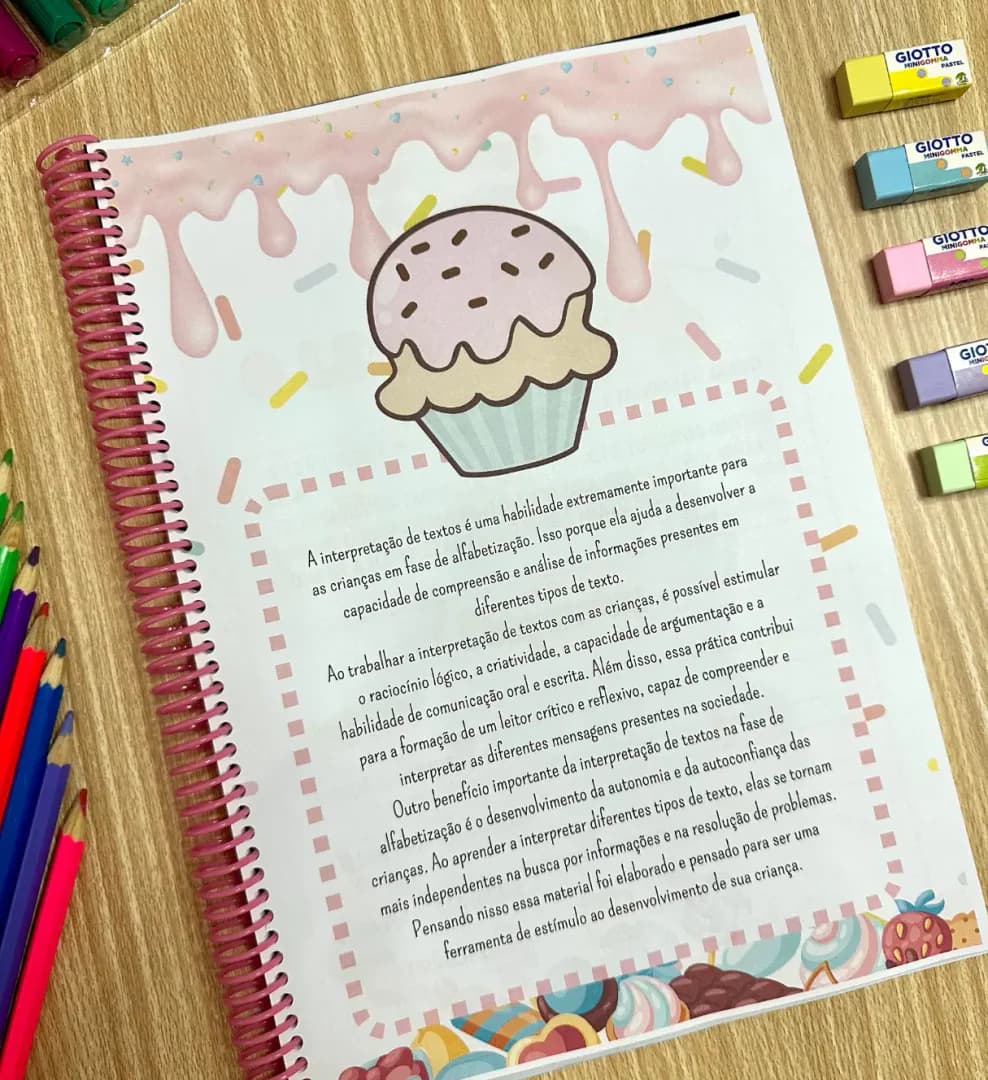 A interpretação de textos é uma habilidade extremamente importante para
as crianças em fase de alfabetização. Isso porque ela ajuda a desenvolver a
capacidade de compreensão e análise de informações presentes em
diferentes tipos de texto.
Ao trabalhar a interpretação de textos com as crianças, é possível estimular
o raciocínio lógico, a criatividade, a capacidade de argumentação e a
habilidade de comunicação oral e escrita. Além disso, essa prática contribui
para a formação de um leitor crítico e reflexivo, capaz de compreender e
interpretar as diferentes mensagens presentes na sociedade.
Outro benefício importante da interpretação de textos na fase de
alfabetização é o desenvolvimento da autonomia e da autoconfiança das
crianças. Ao aprender a interpretar diferentes tipos de texto, elas se tornam
mais independentes na busca por informações e na resolução de problemas.
Pensando nisso essa material foi elaborado e pensado para ser uma
ferramenta de estímulo ao desenvolvimento de sua criança.
GIOTTO
MINIGOMMA
PASTEL
GIOTTO
MINIGOMMA
PASTEL
GIOTTO
MINIGOMMA
PA
GIO
G